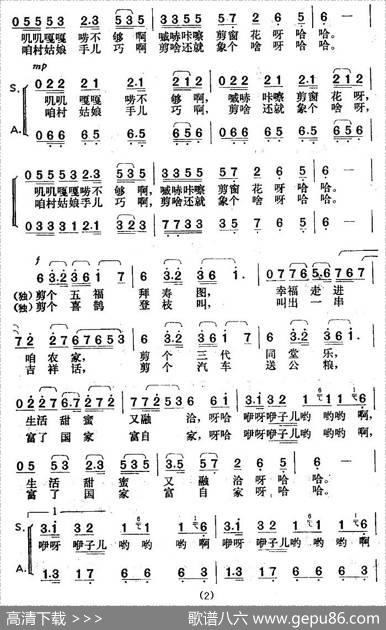 0555 53 2.3 535 3355 57 2 6 5 1 —
叽叽嘎嘎 唠不 够 啊 嘁哧咔嚓 剪窗 花 呀 哈 哈。
咱村姑娘 手儿 巧 啊 剪啥还就 象个 啥 呀 哈 哈。
mp
S. 022 22 2.1 212 022 22 2.1 212
叽叽 嘎嘎 唠不 够 啊, 嘁哧 咔嚓 剪窗 花 呀,
咱村 姑娘 手儿 巧 啊, 剪啥 还就 象个 啥 呀,
A. 066 66 65 656 066 66 65 656
0555 53 2.3 535 3355 57 2 6 5 1 —
叽叽嘎嘎唠不 够 啊, 嘁哧咔嚓 剪窗 花 呀 哈 哈。
咱村姑娘手儿 巧 啊, 剪啥还就 象个 啥 呀 哈 哈。
0333 31 2.1 323 7733 35 7 6 5 1 —
f
6 3.2 361 7 6 3.2 36 1. 0776 5.6 767
(独)剪个 五福 拜寿 图, 幸福 走进
(独)剪个 喜鹊 登枝 叫, 叫出 一串
72 0276 7653 3.2 3.2 361 7 6 3.2 361.
咱 农家, 剪个 三代 同堂 乐,
吉祥 话, 剪个 汽车 送公 粮,
0227 6.727 2 772 536 61 3.i 32 1 1 6
生活 甜 蜜 又融 洽, 呀哈 咿呀 咿子儿 哟 哟 啊,
富了 国 家 富自 家, 呀哈 咿呀 咿子儿 哟 哟 啊,
055 53 2.3 535 3355 57 2 6 5 1 —
生活 甜 蜜 又融 洽 呀 哈 哈。
富了 国 家 富自 家 呀 哈 哈。
1
S. 3.i 32 1 1 6 3.i 32 1 1 6
咿呀 咿子儿 哟 哟 啊 咿呀 咿子儿 哟 哟 啊
A. 1.3 17 6 6 3 1.3 17 6 6 3
(2)
高清下载 >>>
歌谱八六 www.gepu86.com